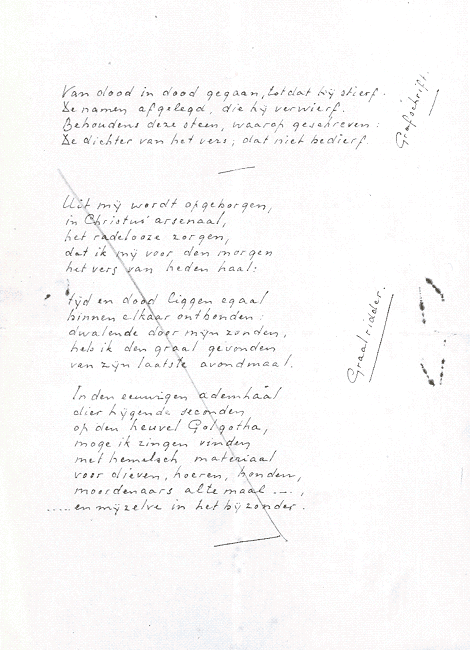 Van dood in dood gegaan, totdat hij stierf.
De namen afgelegd, die hij verwierf.
Behoudens deze steen, waarop geschreven:
De dichter van het vers, dat niet bedierf.
Grafschrift.
Uit mij wordt opgeborgen,
in Christus' arsenaal,
het radelooze zorgen,
dat ik mij voor den morgen
het vers van heden haal:
tijd en dood liggen egaal
binnen elkaar ontbonden:
dwalende door mijn zonden,
heb ik den graal gevonden
van zijn laatste avondmaal.
Graalridder.
In den eeuwigen ademhaal
dier hijgende seconden
op den heuvel Golgotha,
moge ik zingen vinden
met hemelsch materiaal
voor dieven, hoeren, honden,
moordenaars altemaal ....,
..... en mijzelve in het bijzonder.